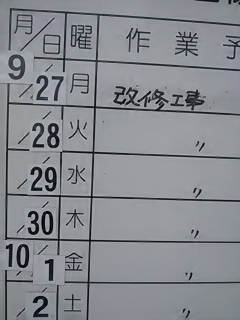 月/日 曜 作業予
9/27 月 改修工事
/28 火 〃
/29 水 〃
/30 木 〃
10/1 金 〃
/2 土 〃